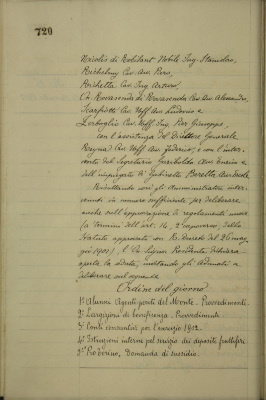 720
Nicolis di Robilant Nobile Ing. Stanislao,
Richelmy Cav. Avv. Piero,
Rochetta Cav. Ing. Arturo,
Ch. Rovasenda di Rovasenda Cav. Avv. Alessandro,
Scarfiotti Cav. Uff. Avv. Lodovico e
Zerboglio Cav. Uff. Ing. Pio Giuseppe,
con l'assistenza del Direttore Generale
Cav. Uff. Avv. e coll'inter-
vento del Segretario Garibaldo Avv. e
dell'impiegato di Gabinetto
Risultando così gli Amministratori inter-
venuti in numero sufficiente per deliberare
anche sull'approvazione di regolamenti
(a termini dell'art. 14, 2° capoverso, dello
Statuto approvato con R. Decreto del 26 mag-
gio 1901), il Sig. Presidente dichiara
aperta la seduta, invitando gli adunati a
deliberare sul seguente
Ordine del giorno
1° Alunni Agenti gerenti del Monte. Provvedimenti.
2° Elargizioni di beneficenza. Provvedimenti.
3° Conti consuntivi per l'esercizio 1902.
4° Istruzioni interne pel servizio dei depositi fruttiferi.
5° Domanda di sussidio.